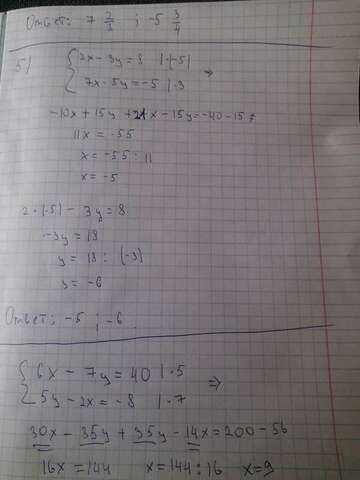 Ответ: 7 2/3 ; -5 3/4
5) { 2x - 3y = 8 | ·(-5)
7x - 5y = -5 | · 3 ⇒
-10x + 15y + 21x - 15y = -40 - 15
11x = -55
x = -55 : 11
x = -5
2 · (-5) - 3y = 8
-3y = 18
y = 18 : (-3)
y = -6
Ответ: -5 ; -6
{ 6x - 7y = 40 | · 5
5y - 2x = -8 | · 7 ⇒
30x - 35y + 35y - 14x = 200 - 56
16x = 144 x = 144 : 16 x = 9